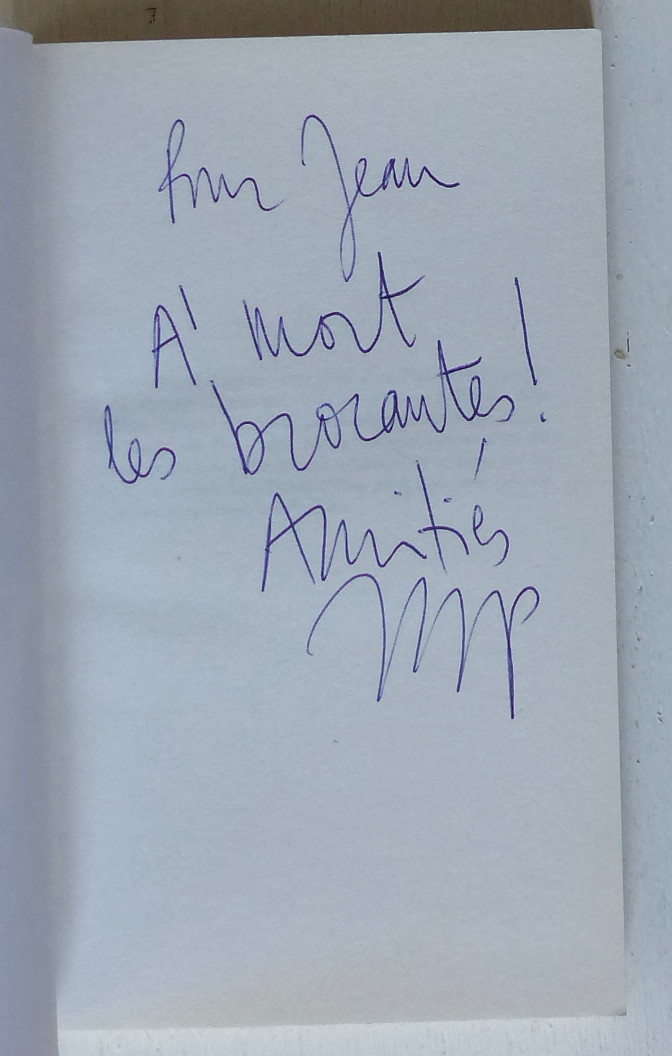 Pour Jean
A' mort
les brocantes!
Amitiés
MP